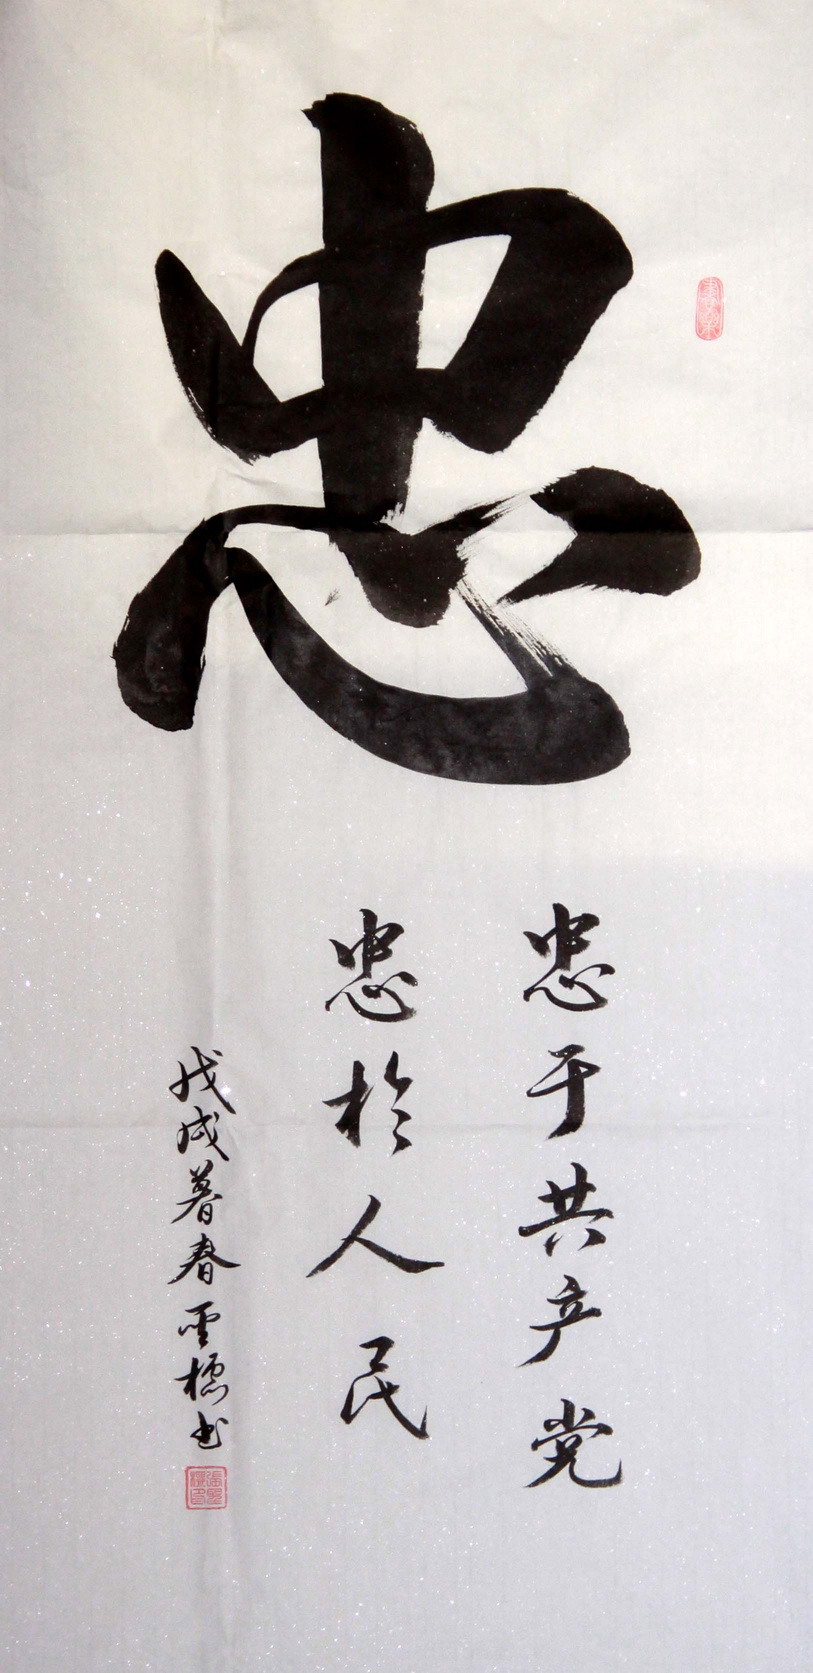 忠
忠于共产党
忠於人民
戊戌暮春雲標书